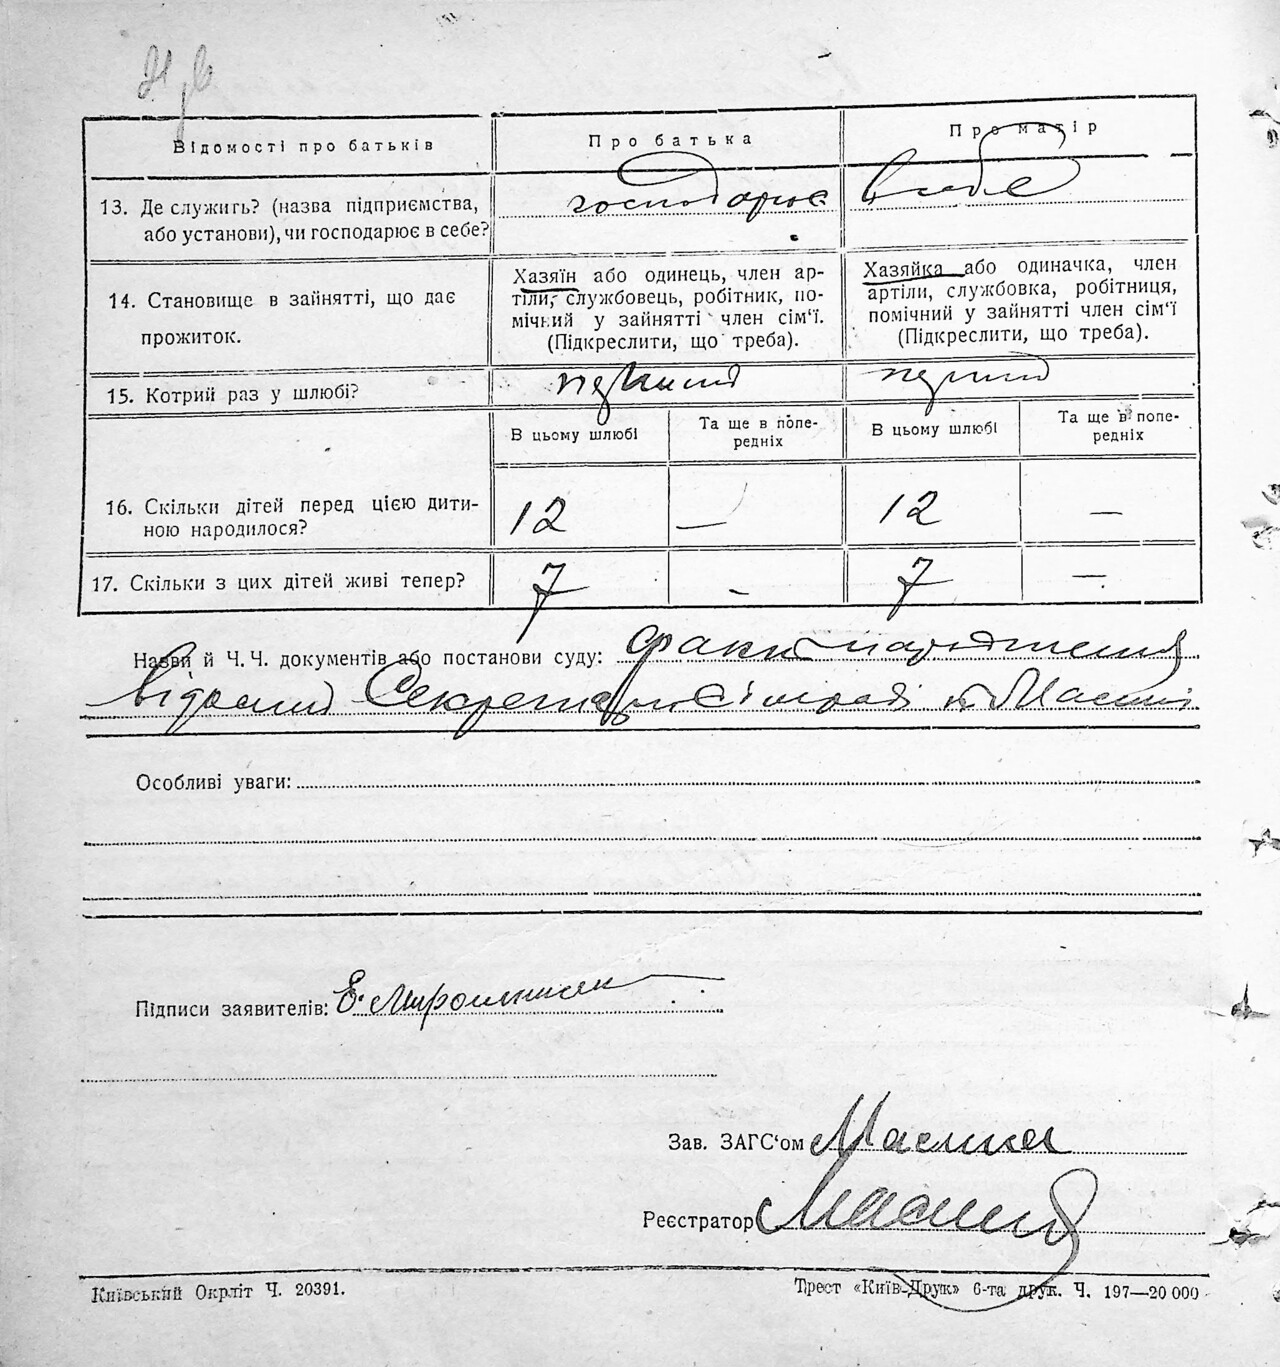 Відомості про батьків
Про батька
Про матір
13. Де служить? (назва підприємства,
або установи), чи господарює в себе?
господарює
в себе
14. Становище в зайнятті, що дає
прожиток.
Хазяїн або одинець, член ар-
тілі, службовець, робітник, по-
мічний у зайнятті член сім'ї.
(Підкреслити, що треба).
Хазяйка або одиначка, член
артіли, службовка, робітниця,
помічний у зайнятті член сім'ї
(Підкреслити, що треба).
15. Котрий раз у шлюбі?
первий
первий
В цьому шлюбі
Та ще в попе-
редніх
В цьому шлюбі
Та ще в попе-
редніх
16. Скільки дітей перед цією дити-
ною народилося?
12
—
12
—
17. Скільки з цих дітей живі тепер?
7
-
7
—
Назви й Ч.Ч. документів або постанови суду: факт народження
відомий Секретарю Сільради
Особливі уваги:
Підписи заявителів: Є. Мирошник
Зав. ЗАГС'ом
Реєстратор
Київський Окрліт Ч. 20391.
Трест «Київ-Друк» 6-та друк. Ч. 197—20 000